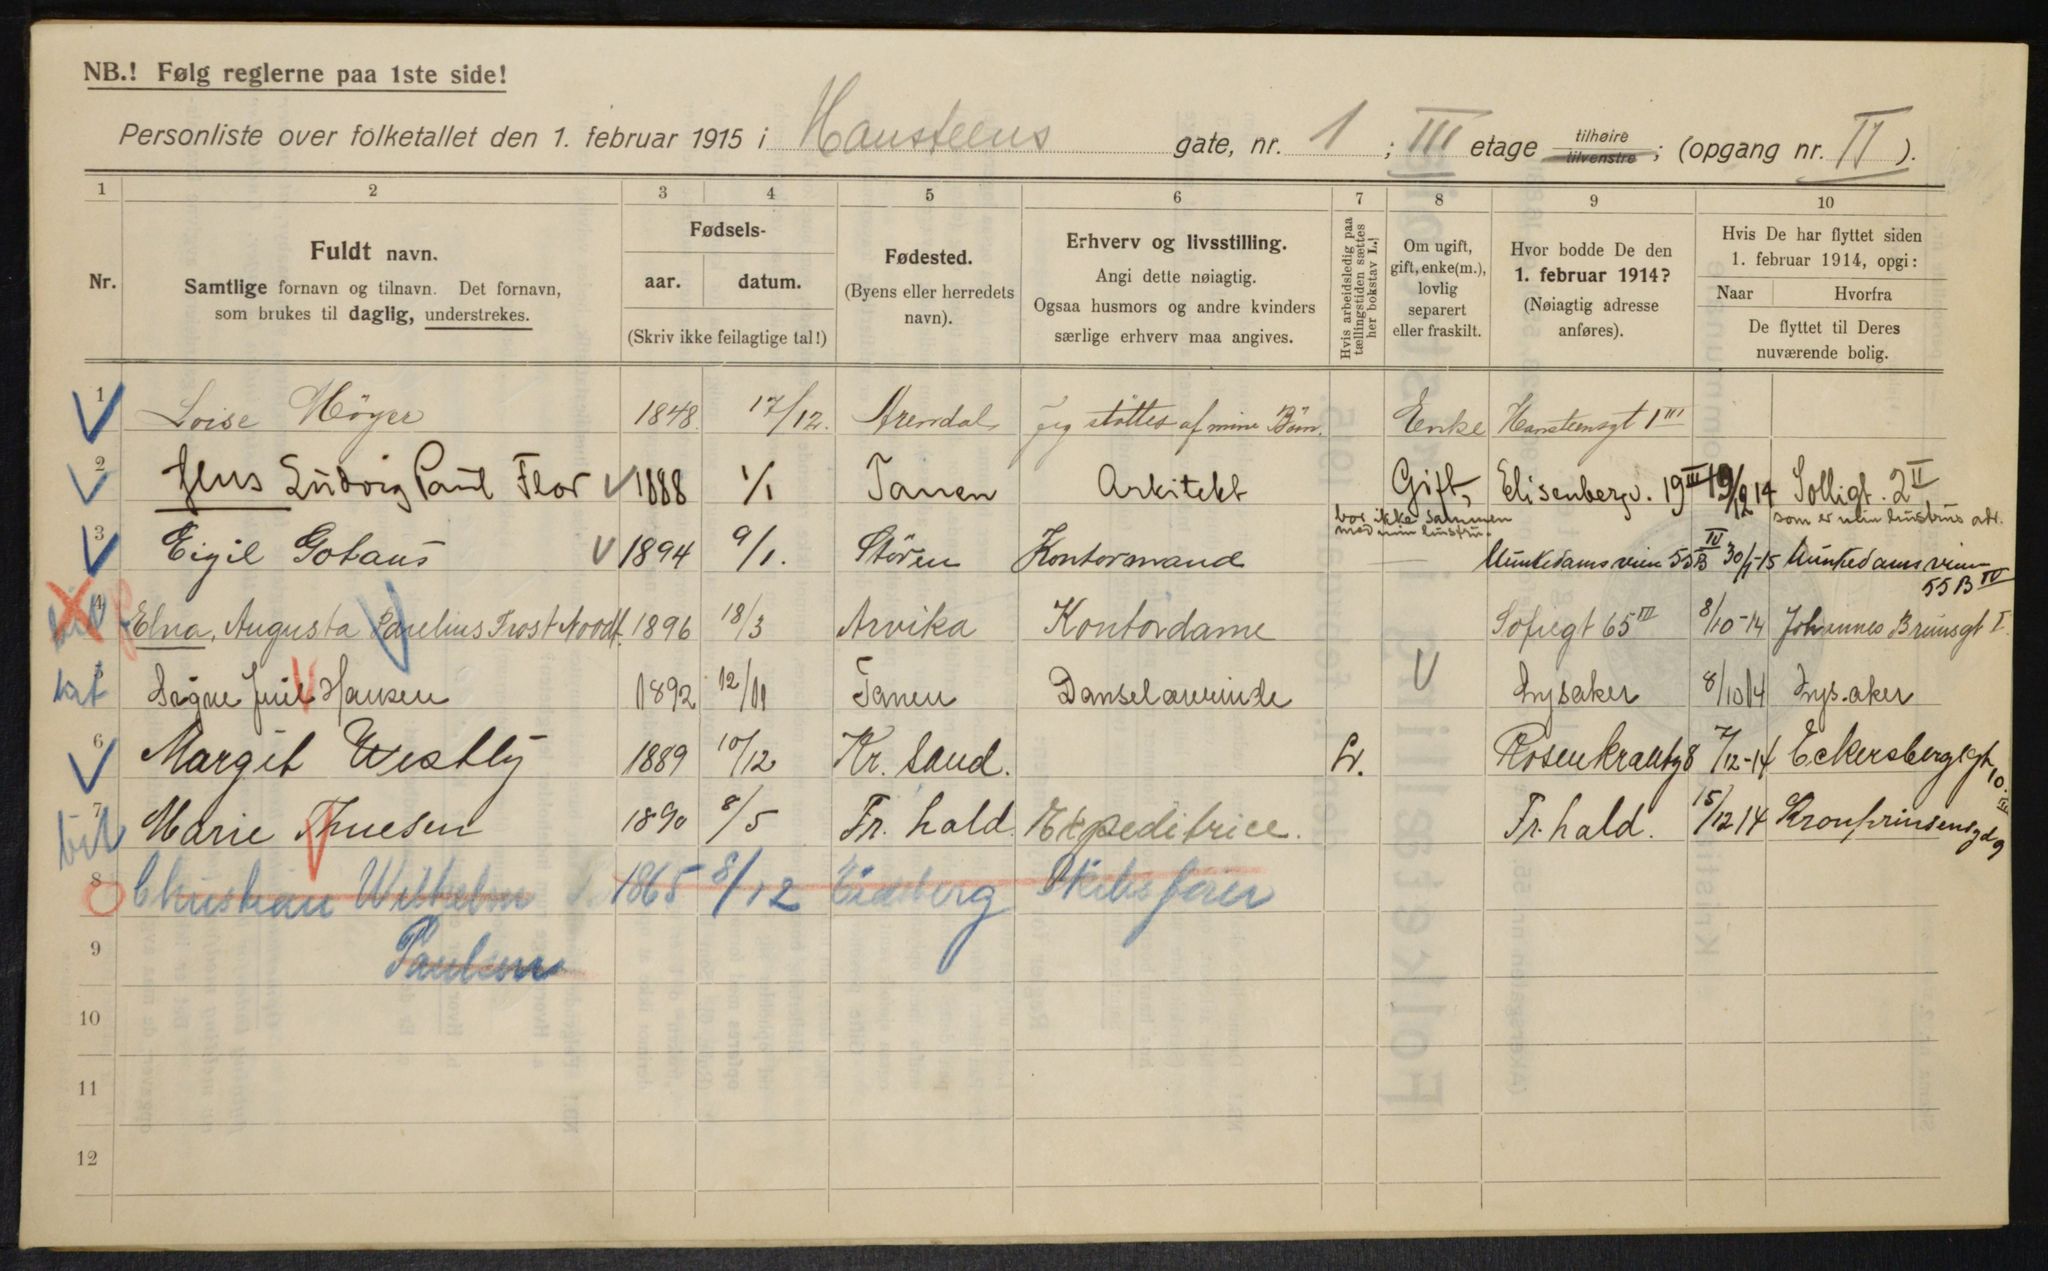 NB.! Følg reglerne paa 1ste side!
Personliste over folketallet den 1. februar 1915 i Hansteens gate, nr. 1 ; III etage tilhøire tilvenstre ; (opgang nr. II ).
1 2 3 4 5 6 7 8 9 10
Nr.
Fuldt navn.
Samtlige fornavn og tilnavn. Det fornavn,
som brukes til daglig, understrekes.
Fødsels-
aar. datum.
(Skriv ikke feilagtige tal!)
Fødested.
(Byens eller herredets
navn).
Erhverv og livsstilling.
Angi dette nøiagtig.
Ogsaa husmors og andre kvinders
særlige erhverv maa angives.
Hvis arbeidsledig paa
tællingstiden sættes
her bokstav L.!
Om ugift,
gift, enke(m.),
lovlig
separert
eller fraskilt.
Hvor bodde De den
1. februar 1914?
(Nøiagtig adresse
anføres).
Hvis De har flyttet siden
1. februar 1914, opgi:
Naar Hvorfra
De flyttet til Deres
nuværende bolig.
1 Loise Höyer 1848. 17/12. Arendal Jeg støttes af mine Börn. Enke Hansteensgt 1 III
2 Jens Ludvig Paul Flor 1888 1/1 Tanen Arkitekt Gift, Elisenbergv. 19 III 19/12 14 Solligt. 2 II
bor ikke sammen
med min hustru.
som er min hustrus adr.
3 Eigil Gotaus 1894 9/1. Stören Kontormand — Munkedamsveien 55B IV 30/1-15 Munkedamsveien
55 B IV
4 Elna, Augusta Parelius Trost Noodt. 1896 18/3 Arvika Kontordame Sofiegt 65 III 8/10-14 Johannes Brunsgt I.
5 Signe Juul Hansen 1892 12/11 Tanen Danselærerinde Lysaker 8/10 14 Lysaker
6 Margit Westby 1889 10/12 Kr. sand. L. Rosenkrantzg 8 7/12-14 Eckersbergsgt
10. III
7 Marie Thuesen 1890 8/5 Fr. hald. Expeditrice. Fr. hald. 15/12 14 Kronprinsensgd 9
8 Christian Wilhelm 1865 8/12 Eidsberg
9 Paulsen
10
11
12